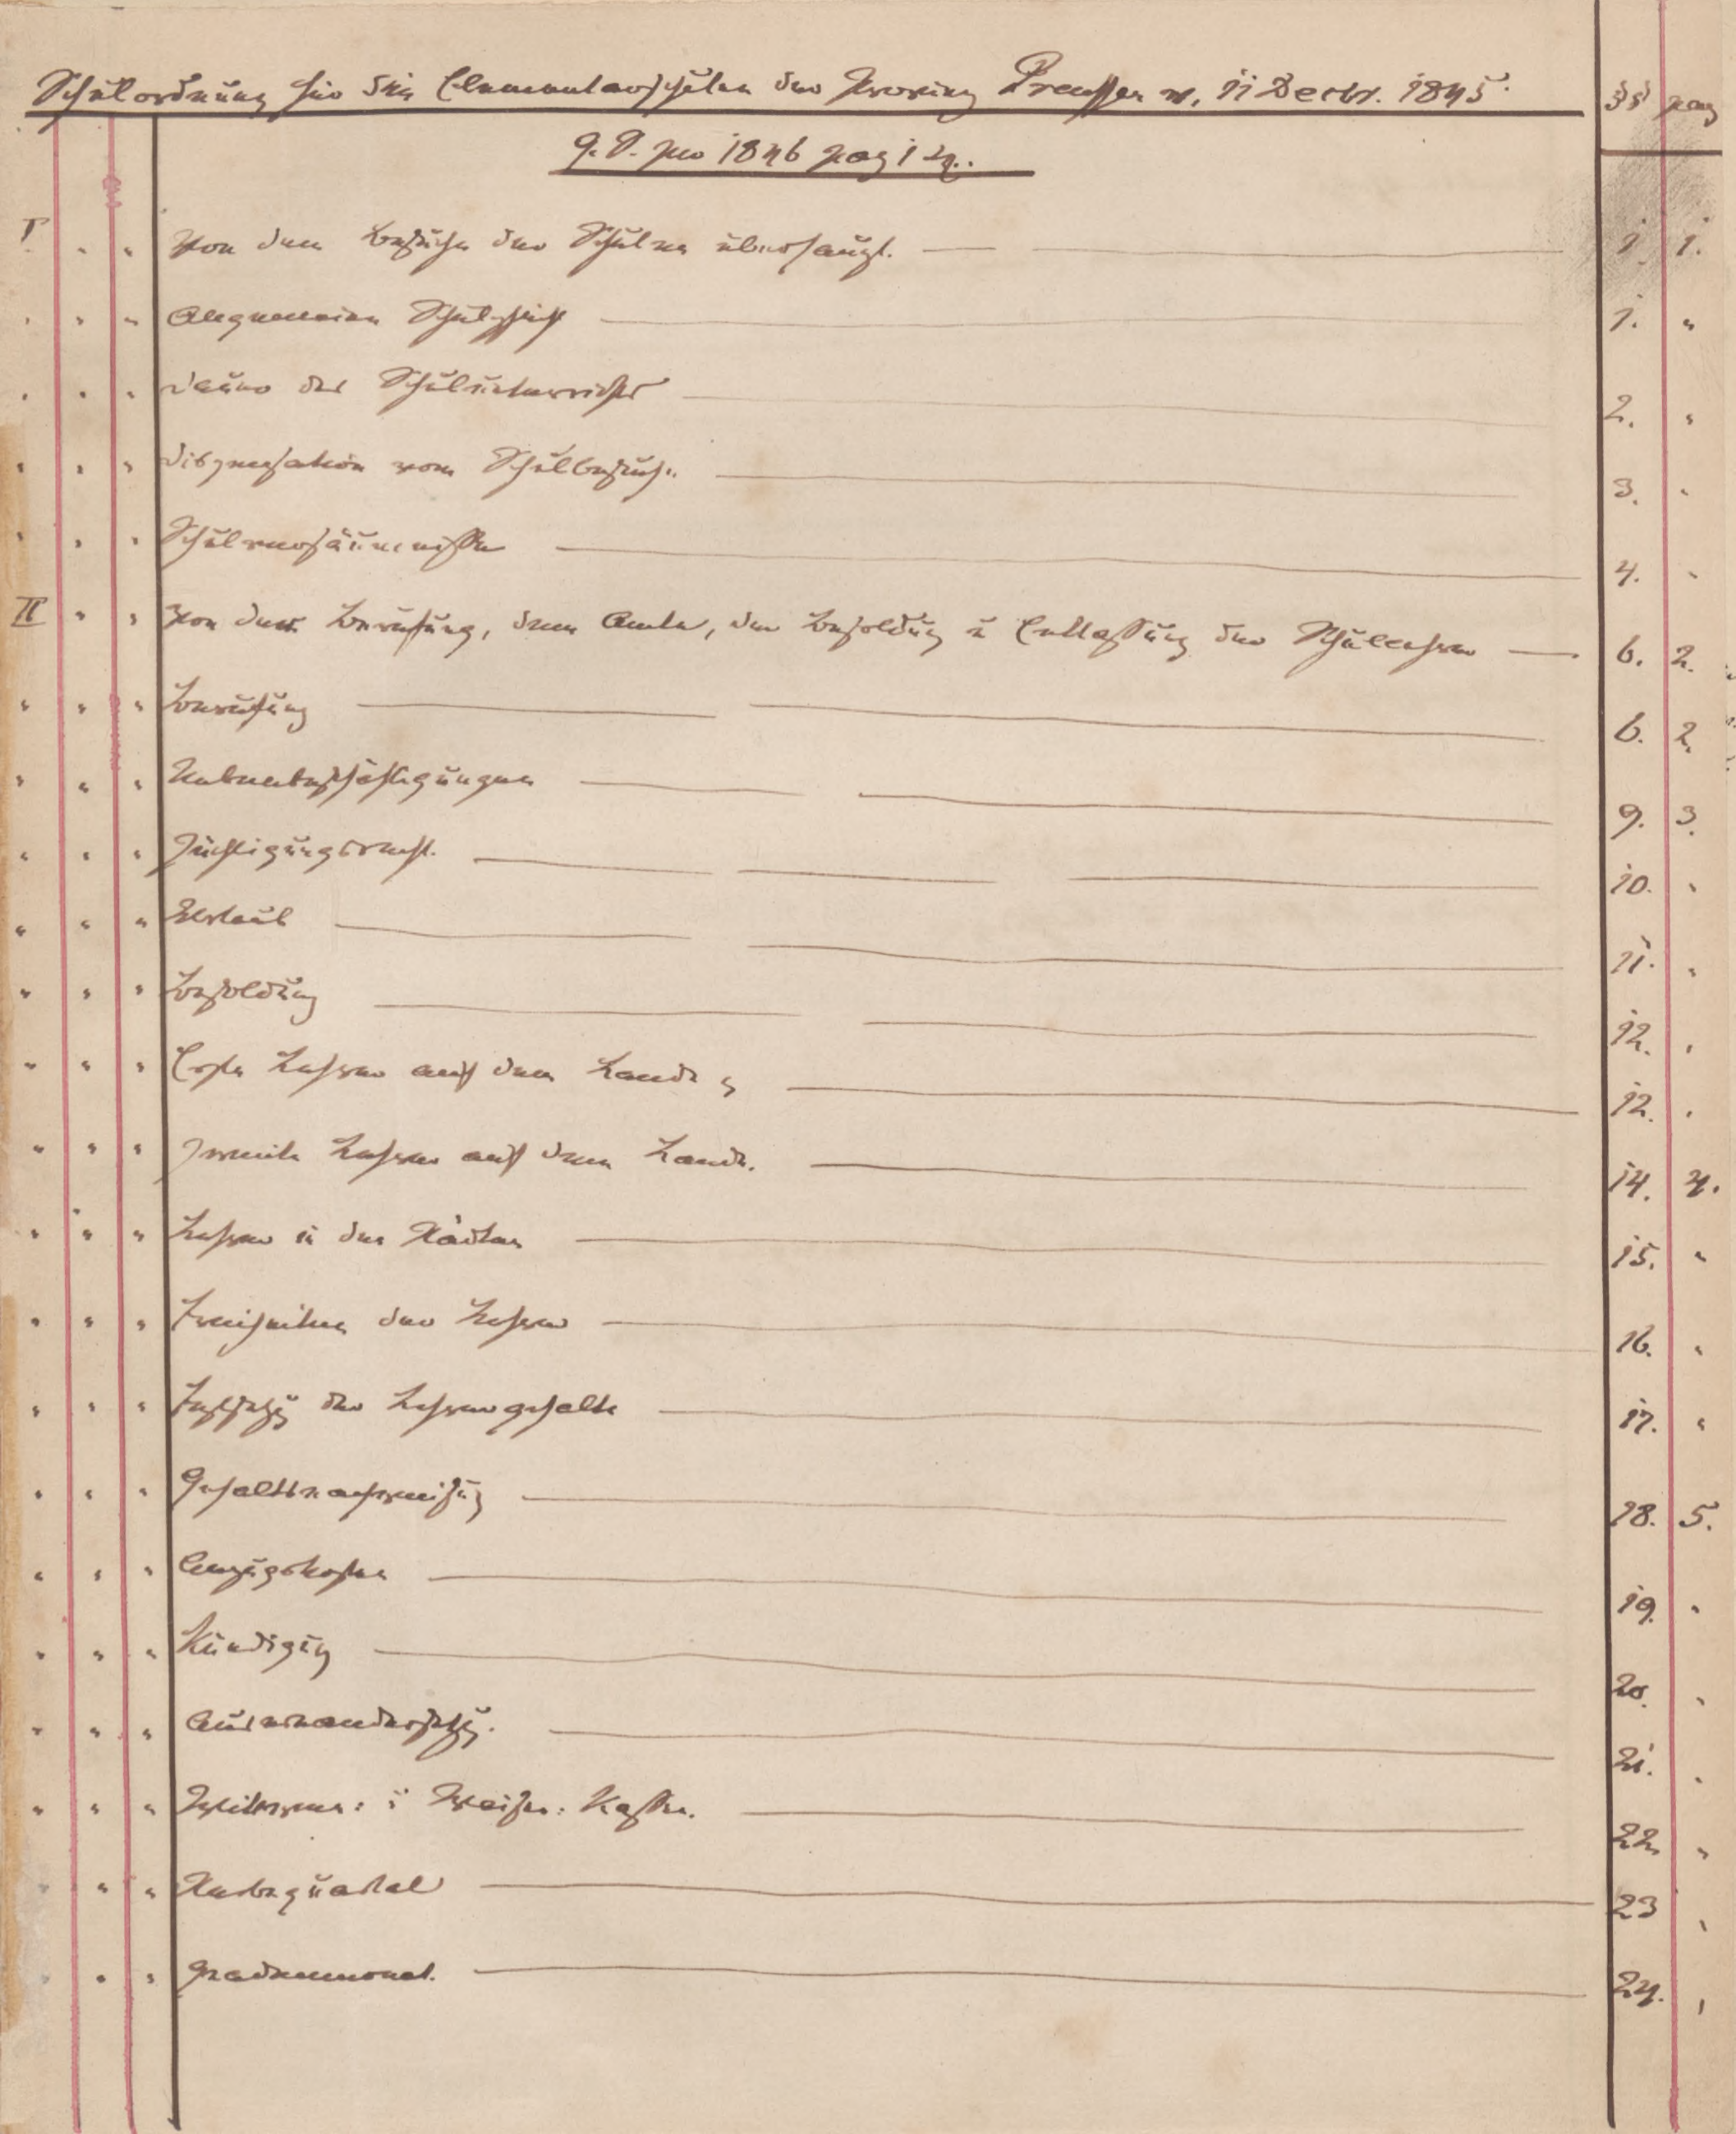 Schulordnung für die Elementarschulen der Provinz Preußen v. 11 Decbr. 1845. §§ pag
G. S. pro 1846 pag 1 sq.
I " " Von dem Besuche der Schulen überhaupt. 1. 1.
" " " Allgemeine Schulpflicht 1. "
" " " Dauer des Schulunterrichts 2. "
" " " Dispensation vom Schulbesuche 3. "
" " " Schulversäumnisse 4. "
II " " Von der Berufung, dem Amte, der Besoldung u Entlassung der Schullehrer 6. 2.
" " " Berufung 6. 2.
" " " Nebenbeschäftigungen 9. 3.
" " " Züchtigungsrecht. 10. "
" " " Urlaub 11. "
" " " Besoldung 12. "
" " " Erste Lehrer auf dem Lande 12. "
" " " Zweite Lehrer auf dem Lande. 14. 4.
" " " Lehrer in den Städten 15. "
" " " Freiheiten der Lehrer 16. "
" " " Festsetzg der Lehrergehalte 17. "
" " " Gehaltsnachweisung 18. 5.
" " " Anzugskosten 19. "
" " " Kündigung 20. "
" " " Auseinandersetzg. 21. "
" " " Wittwen: u Waisen: Kassen. 22. "
" " " Sterbequartal 23 "
" " " Gnadenmonat. 24. "